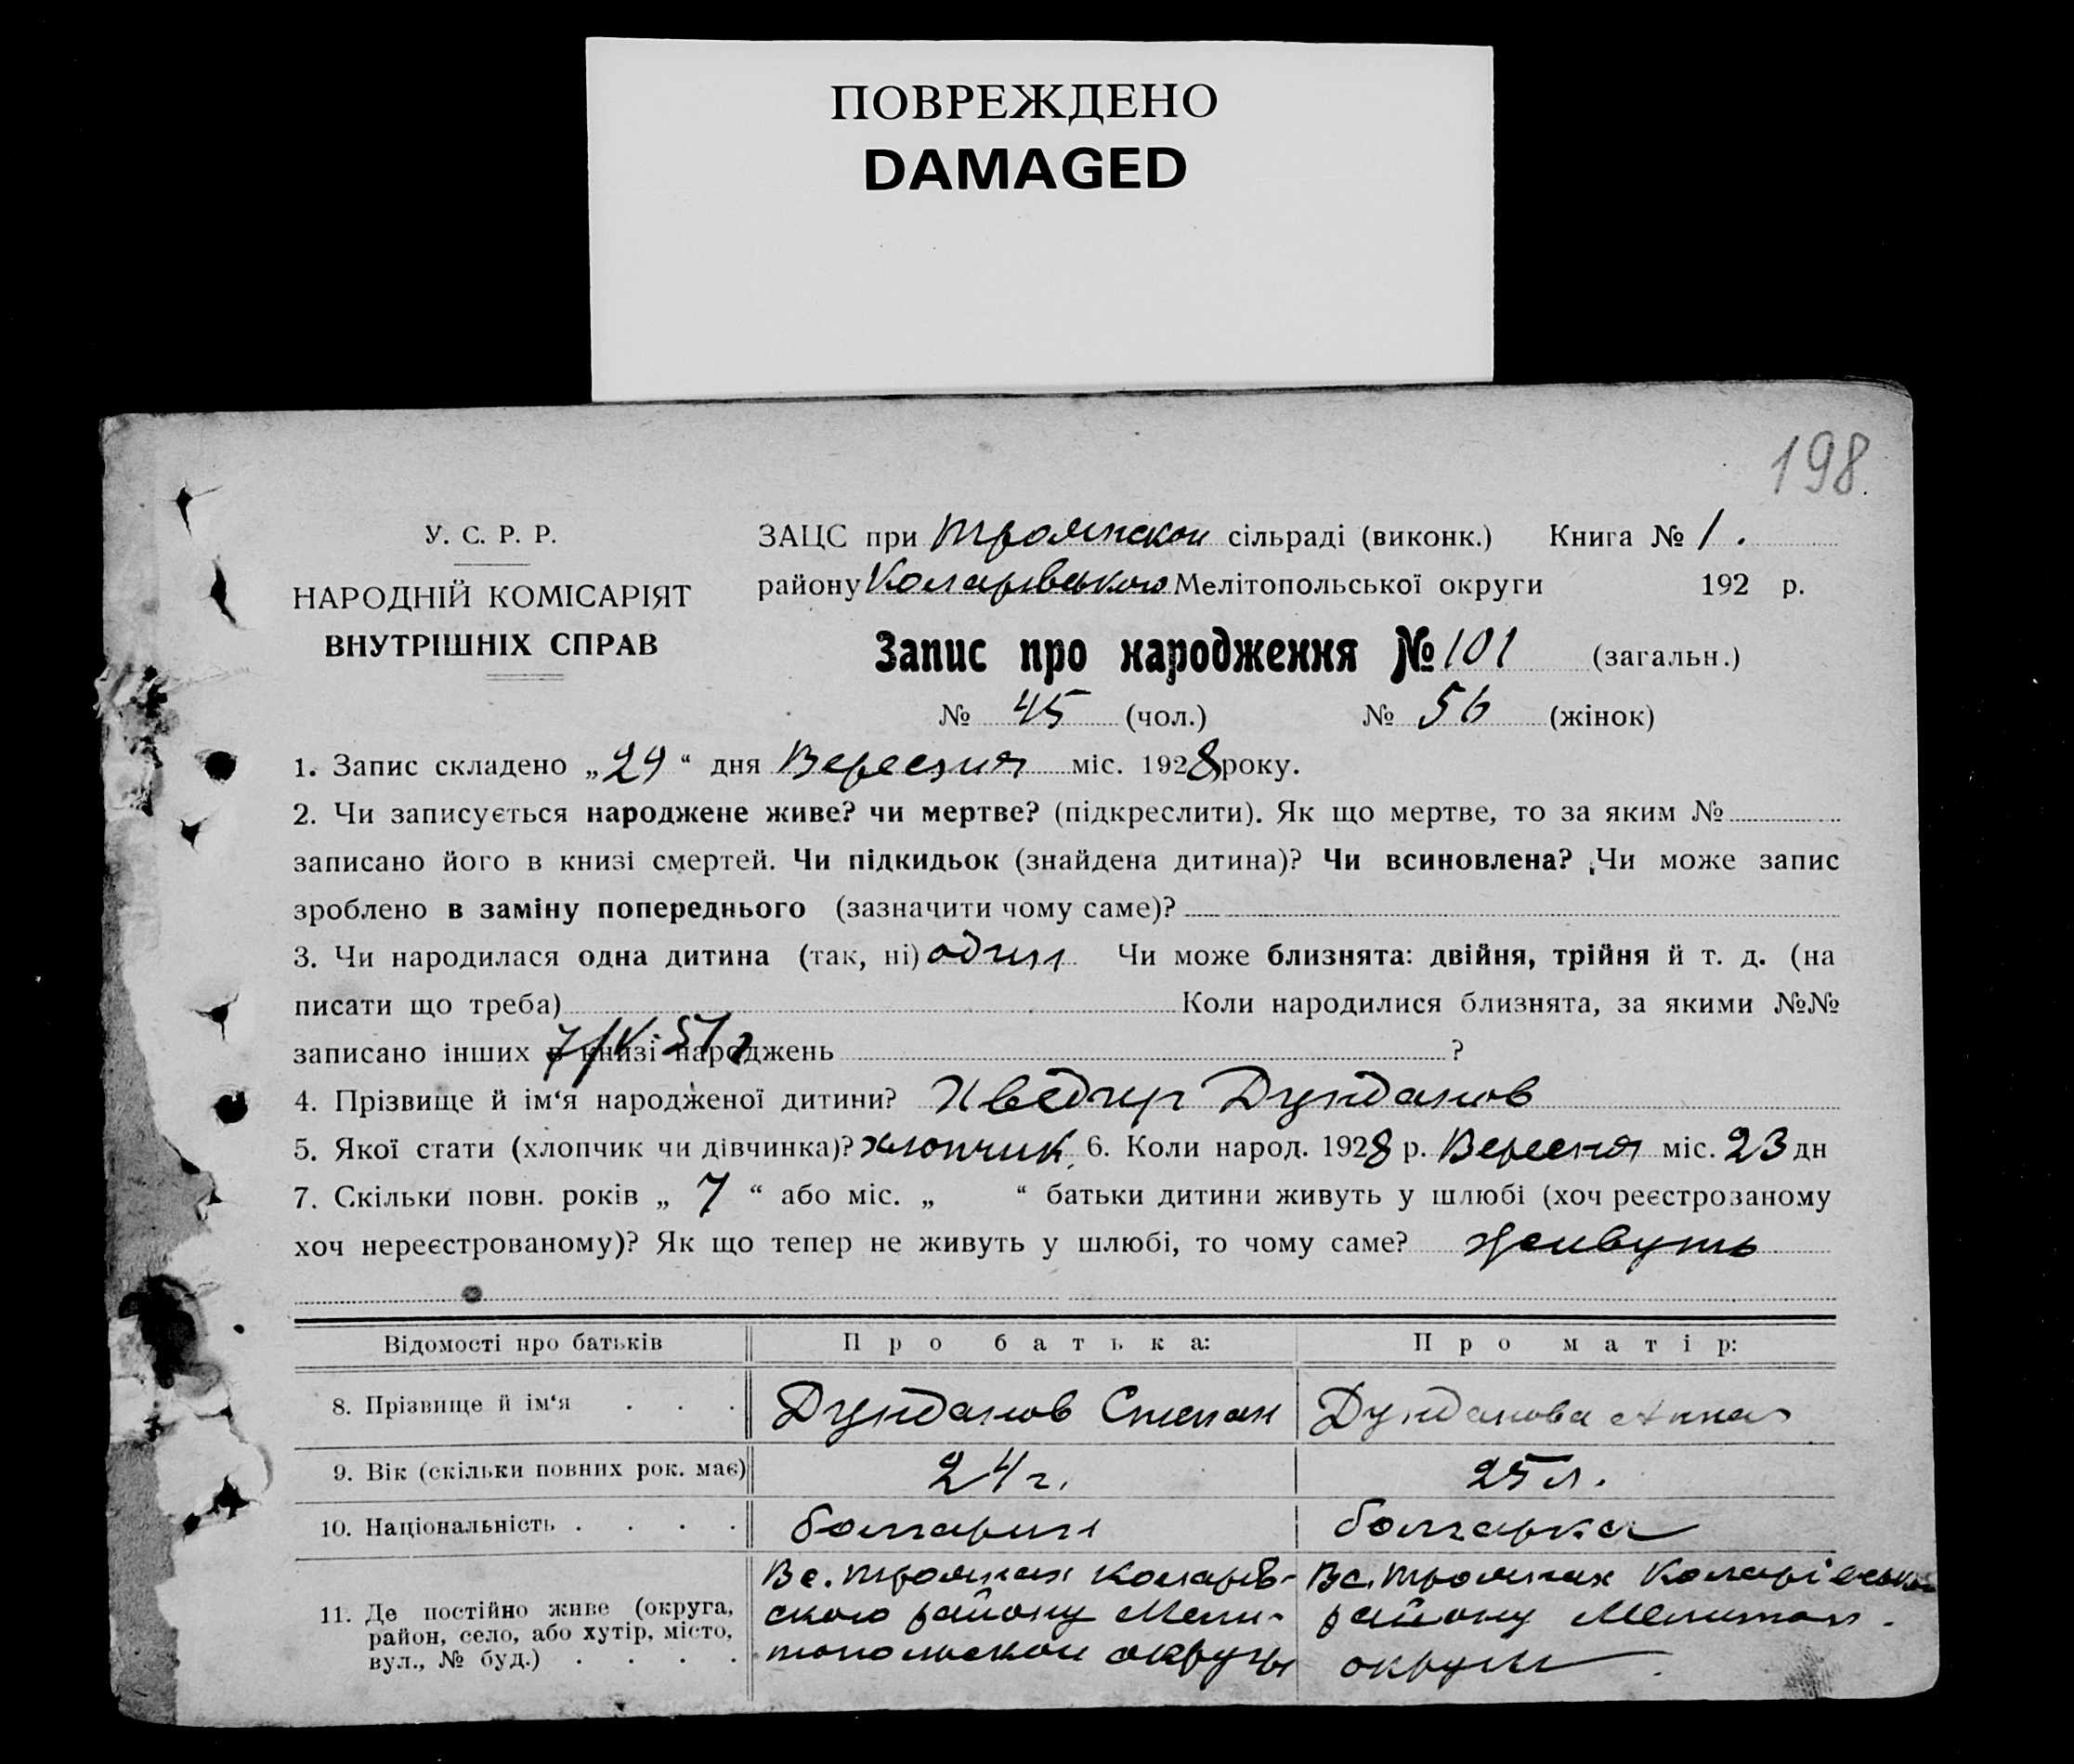 ПОВРЕЖДЕНО
DAMAGED
198
У. С. Р. Р.
НАРОДНІЙ КОМІСАРІЯТ
ВНУТРІШНІХ СПРАВ
ЗАЦС при Троянскои сільраді (виконк.) Книга № 1.
району Коларівського Мелітопольської округи 192 р.
Запис про народження № 101 (загальн.)
№ 45 (чол.) № 56 (жінок)
1. Запис складено „29“ дня Вересня міс. 1928 року.
2. Чи записується народжене живе? чи мертве? (підкреслити). Як що мертве, то за яким №
записано його в книзі смертей. Чи підкидьок (знайдена дитина)? Чи всиновлена? Чи може запис
зроблено в заміну попереднього (зазначити чому саме)?
3. Чи народилася одна дитина (так, ні) один Чи може близнята: двійня, трійня й т. д. (на
писати що треба) Коли народилися близнята, за якими №№
записано інших в книзі народжень ?
4. Прізвище й ім‘я народженої дитини? Хведир Дунданов
5. Якої стати (хлопчик чи дівчинка)? хлопчик 6. Коли народ. 1928 р. Вересня міс. 23 дн
7. Скільки повн. років „ 7 “ або міс. „ “ батьки дитини живуть у шлюбі (хоч реєстрозаному
хоч нереєстрованому)? Як що тепер не живуть у шлюбі, то чому саме? живуть
Відомості про батьків Про батька: Про матір:
8. Прізвище й ім‘я . . . Дунданов Степан Дунданова Анна
9. Вік (скільки повних рок. має) 24 г. 25 л.
10. Національність . . . . болгарин болгарка
11. Де постійно живе (округа,
район, село, або хутір, місто,
вул., № буд.) . . . .
В с. Троянах Коларів-
ского району Мели-
топольскои округи
В с. Троянах Коларівсько
району Мелитоп.
округи